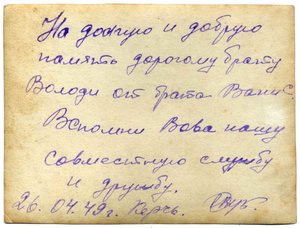 На долгую и добрую
память дорогому брату
Володи от брата Вани С.
Вспомни Вова нашу
совместную службу
и дружбу.
26.04.49г. Керчь.